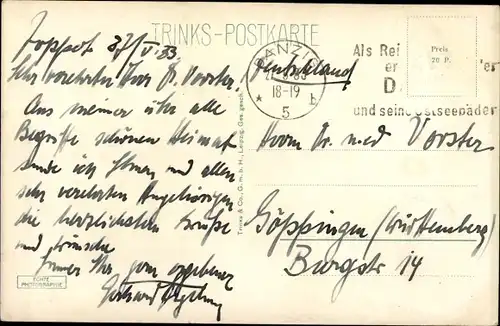 TRINKS-POSTKARTE
Zoppot 27/VI 33
Sehr verehrter Herr Dr. Vorster.
Aus meiner über alle
Begriffe schönen Heimat
sende ich Ihnen und allen
sehr verehrten Angehörigen
die herzlichsten Grüße
und Wünsche
Immer Ihr ganz ergebener
Gerhard
ECHTE
PHOTOGRAPHIE
Trinks & Co., G. m. b. H., Leipzig. Ges. gesch.
DANZIG
18-19
* 5 b
Als Rei
er
D
und seine Ostseebäder
Preis
20 P.
Deutschland
Herrn Dr. med Vorster
Göppingen (Württemberg)
Burgstr 14